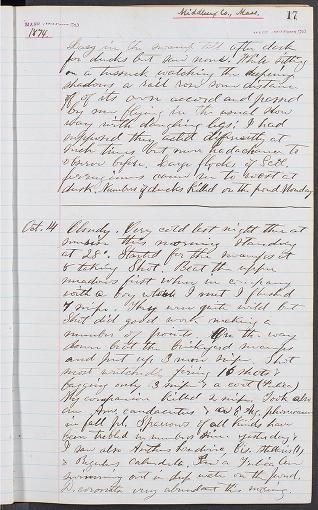 Middlesex Co., Mass.
17
1874.
Lay in the swamp till after dusk
for ducks but saw none. While sitting
on a tussock watching the deepening
shadows a rail rose some distance
off of its own accord and passed
by me flying in the usual slow
way with dangling legs. I had
supposed they flew differently at
such times but never had a chance to
observe before. Large flocks of Scol.
ferrugineus came in to roost at
dusk. Numbers of ducks killed on the pond Monday
Oct. 14
Cloudy. Very cold last night the at
sunrise this morning standing
at 28°. Started for the swamps at
8 taking Shot. Beat the upper
meadows first when in company
with a boy I met I flushed
4 snipe. They were quite wild but
Shot did good work making a
number of points. On the way
down beat the brickyard swamp
and put up 3 more snipe. Shot
most wretchedly firing 16 shots &
bagging only 3 snipe & a coot
My companion killed 2 snipe. Took also
an Ans. caudacutus & a Ag. phoeniceus
in fall pl. Sparrows of all kinds have
been trebled in numbers since yesterday &
I saw also Anthus ludovic.
& Regulus calendula. Saw a Fulica
swimming out in deep water on the pond.
D. coronata very abundant this morning.